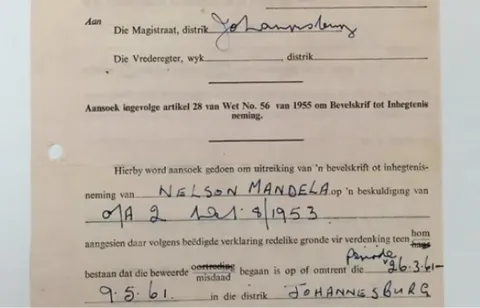 Aan
Die Magistraat, distrik Johannesburg
Die Vrederegter, wyk , distrik
Aansoek ingevolge artikel 28 van Wet No. 56 van 1955 om Bevelskrif tot Inhegtenis
neming.
Hierby word aansoek gedoen om uitreiking van 'n bevelskrif ot inhegtenis-
neming van NELSON MANDELA op 'n beskuldiging van
8/1953
aangesien daar volgens beëdigde verklaring redelike gronde vir verdenking teen hom
haar
bestaan dat die beweerde oortreding
misdaad begaan is op of omtrent die periode 26.3.61-
9.5.61. in die distrik JOHANNESBURG